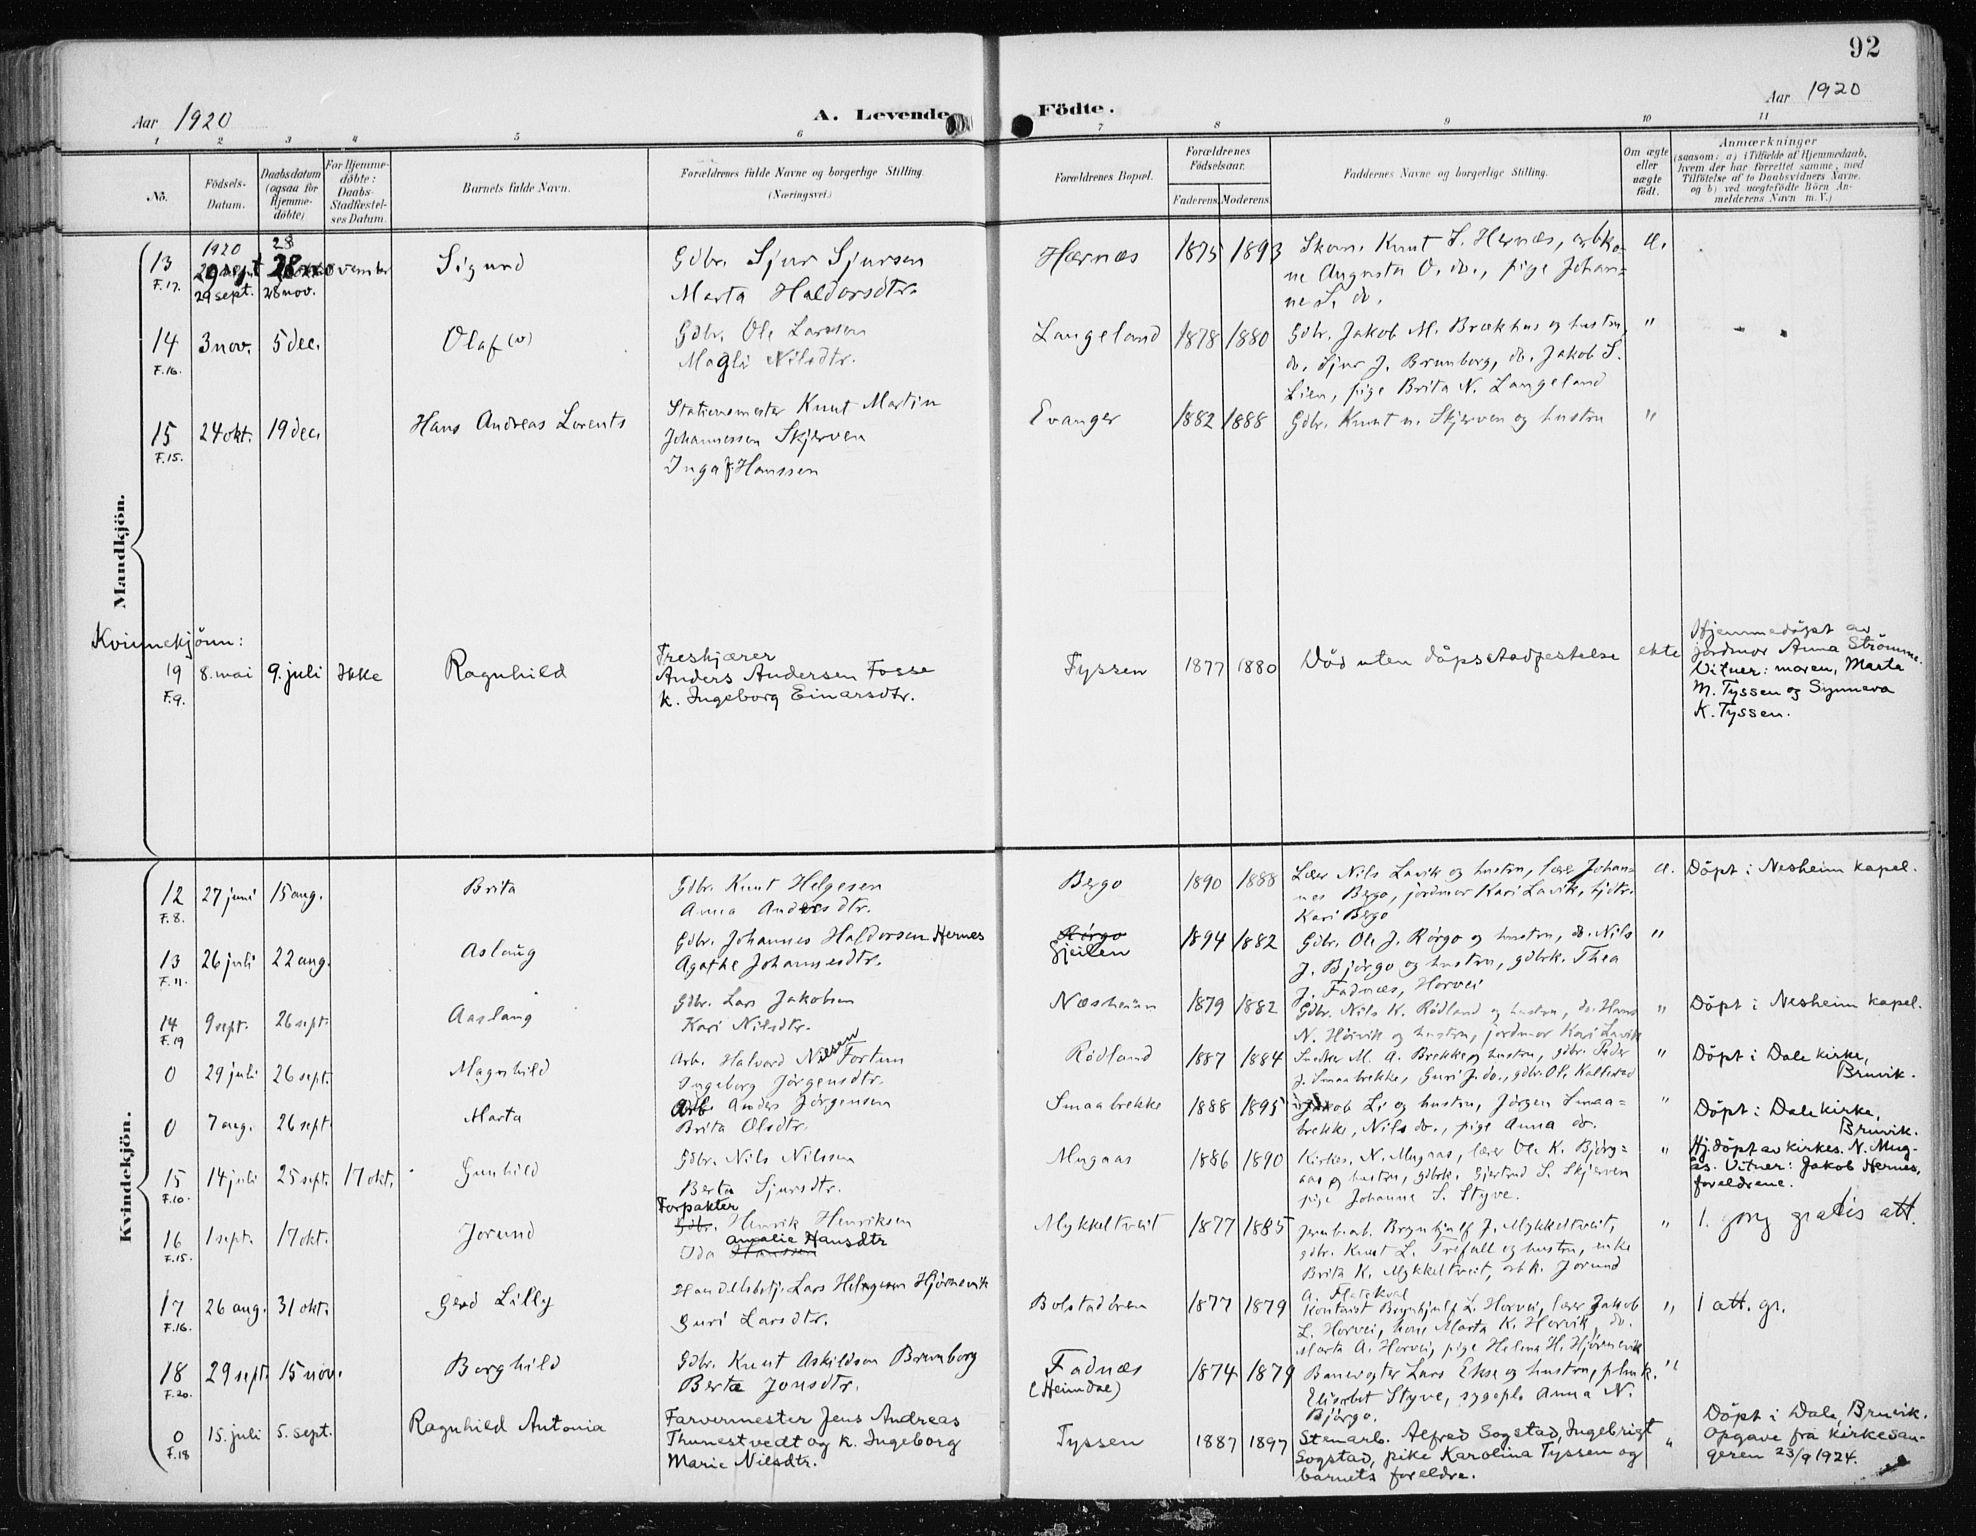 92
Aar 1920
A. Levende Födte.
Aar 1920
1 2 3 4 5 6 7 8 9 10 11
No.
Födsels-Datum.
Daabsdatum (ogsaa för Hjemme-döbte)
For Hjemme-döbte: Daabs-Stadfæstel-ses Datum.
Barnets fulde Navn.
Forældrenes fulde Navne og borgerlige Stilling.
(Næringsvei.)
Forældrenes Bopæl.
Forældrenes Födselsaar.
Faderens. Moderens.
Faddernes Navne og borgerlige Stilling.
Om ægte eller uægte födt.
Anmærkninger
(saasom: a) i Tilfælde af Hjemmedaab,
hvem der har forrettet samme, med
Tilföielse af to Daabsvidners Navne.
og b) ved uægtefödte Börn An-
melderens Navn m. V.)
Mandkjön.
1920 28
13 29 sept 28 november Sigurd Gdbr. Sjur Sjursen Hærnæs 1875 1893 Knut S. Hernæs, arbko-
F.17. 29 sept. 28 nov. Marta Haldorsdtr. ne Augusta O. do., pige Johan-
ne S. do.
14 3 nov. 5 dec. Olaf (v) Gdbr. Ole Larssen Langeland 1878 1880 Gdbr. Jakob M. Brækhus og hustru, "
F.16. Magli Nilsdtr. do. Sjur J. Brunborg, do. Jakob S.
Lien, pige Brita N. Langeland
15 24 okt. 19 dec. Hans Andreas Lorents Stationsmester Knut Martin Evanger 1882 1888 Gdbr. Knut n. Skjerven og hustru "
F.15. Johannessen Skjerven
Inga J. Hanssen
Kvinnekjönn:
19 8. mai 9. juli Ikke Ragnhild Treskjærer Tyssen 1877 1880 Död uten döpsstadfestelse ekte Hjemmedöpt av
F.9. Anders Andersen Fosse jordmor Anna Strömme.
k. Ingeborg Einarsdtr. Vitner: moren, Marta
M. Tyssen og Synneva
K. Tyssen.
Kvindekjön.
12 27 juni 15 aug. Brita Gdbr. Knut Helgesen Bergo 1890 1888 Lærer Nils Lavik og hustru, lærer Johan- Döpt i Nesheim kapel.
F.8. Anna Andersdtr. nes Bergo, jordmor Kari Lavik,
Kari Bergo
13 26 juli 22 aug. Aslaug Gdbr. Johannes Haldorsen Hernes Rörgo 1894 1882 Gdbr. Ole J. Rörgo og hustru, do. Nils "
F.11. Agathe Johannesdtr. Gjeilen J. Björgo og hustru, gdbrk. Thea
J. Fadnæs, Horvei
14 9 sept. 26 sept. Aaslaug Gdbr. Lars Jakobsen Næsheim 1879 1882 Gdbr. Nils K. Rödland og hustru, do. Hans " Döpt i Nesheim kapel.
F.19 Kari Nilsdtr. N. Horvik og hustru, jordmor Kari Lavik
0 29 juli 26 sept. Magnhild Arb. Halvard Nilsen Fortun Rödland 1887 1884 Snedker M. A. Brekke og hustru, gdbr. Peder " Döpt i Dale kirke,
Ingeborg Jörgensdtr. J. Smaabrekke, Guri J. do., gdbr. Ol. Kallestad Bruvik.
0 7 aug. 26 sept. Marta Arb. Anders Jörgensen Smaabrekke 1888 1895 Jakob Li og hustru, Jörgen Smaa- " Döpt i Dale kirke,
Brita Olsdtr. brekke, Nils do., pige Anna do. Bruvik.
15 14 juli 25 sept. 17 okt. Gunhild Gdbr. Nils Nilssen Mugaas 1886 1890 Kirkes. N. Mugaas, lærer Ole K. Björg- " Hj.döpt av kirkes. N. Mug-
F.10. Berta Sjursdtr. aas og hustru, gdbrk. Gjertrud S. Skjerven ås. Vitner: Jakob Hernes,
pige Johanne S. Styve. foreldrene.
16 1 sept. 17 okt. Jorund Forpakter Gdbr. Henrik Henriksen Mykkeltveit 1877 1885 Jernb.arb. Brynhjulf J. Mykkeltveit, " 1. gong gratis att.
F.15. Ida Amalie Hansdtr Hanssen gdbr. Knut L. Trefall og hustru, enke
Brita K. Mykkeltveit, arb.k. Jorund
A. Flatekval
17 26 aug. 31 okt. Gerd Lilly Handelsbetj. Lars Helgesen Hjörnevik Bolstadören 1877 1879 Kontorist Brynhjulf L. Horvei, lærer Jakob " 1 att. gr.
F.16. Guri Larsdtr. L. Horvei, kone Marta K. Horvik, do.
Marta A. Horvei, pige Helena H. Hjörnevik
18 29 sept. 15 nov. Borghild Gdbr. Knut Askildsen Brunborg Fadnæs 1874 1879 Banevogter Lars Ekse og hustru, "
F.20. Berta Jonsdtr. (Heimdal) Elisabet Styve, sygepl. Anna N.
Björgo.
0 15. juli 5. sept. Ragnhild Antonia Farvermester Jens Andreas Tyssen 1887 1897 Stenarb. Alfred Sogstad, Ingebrigt " Döpt i Dale, Bruvik.
F.18 Thunestvedt og k. Ingeborg Sogstad, pike Karolina Tyssen og Opgave fra kirkesan-
Marie Nilsdtr. barnets foreldre. geren 23/9 1924.